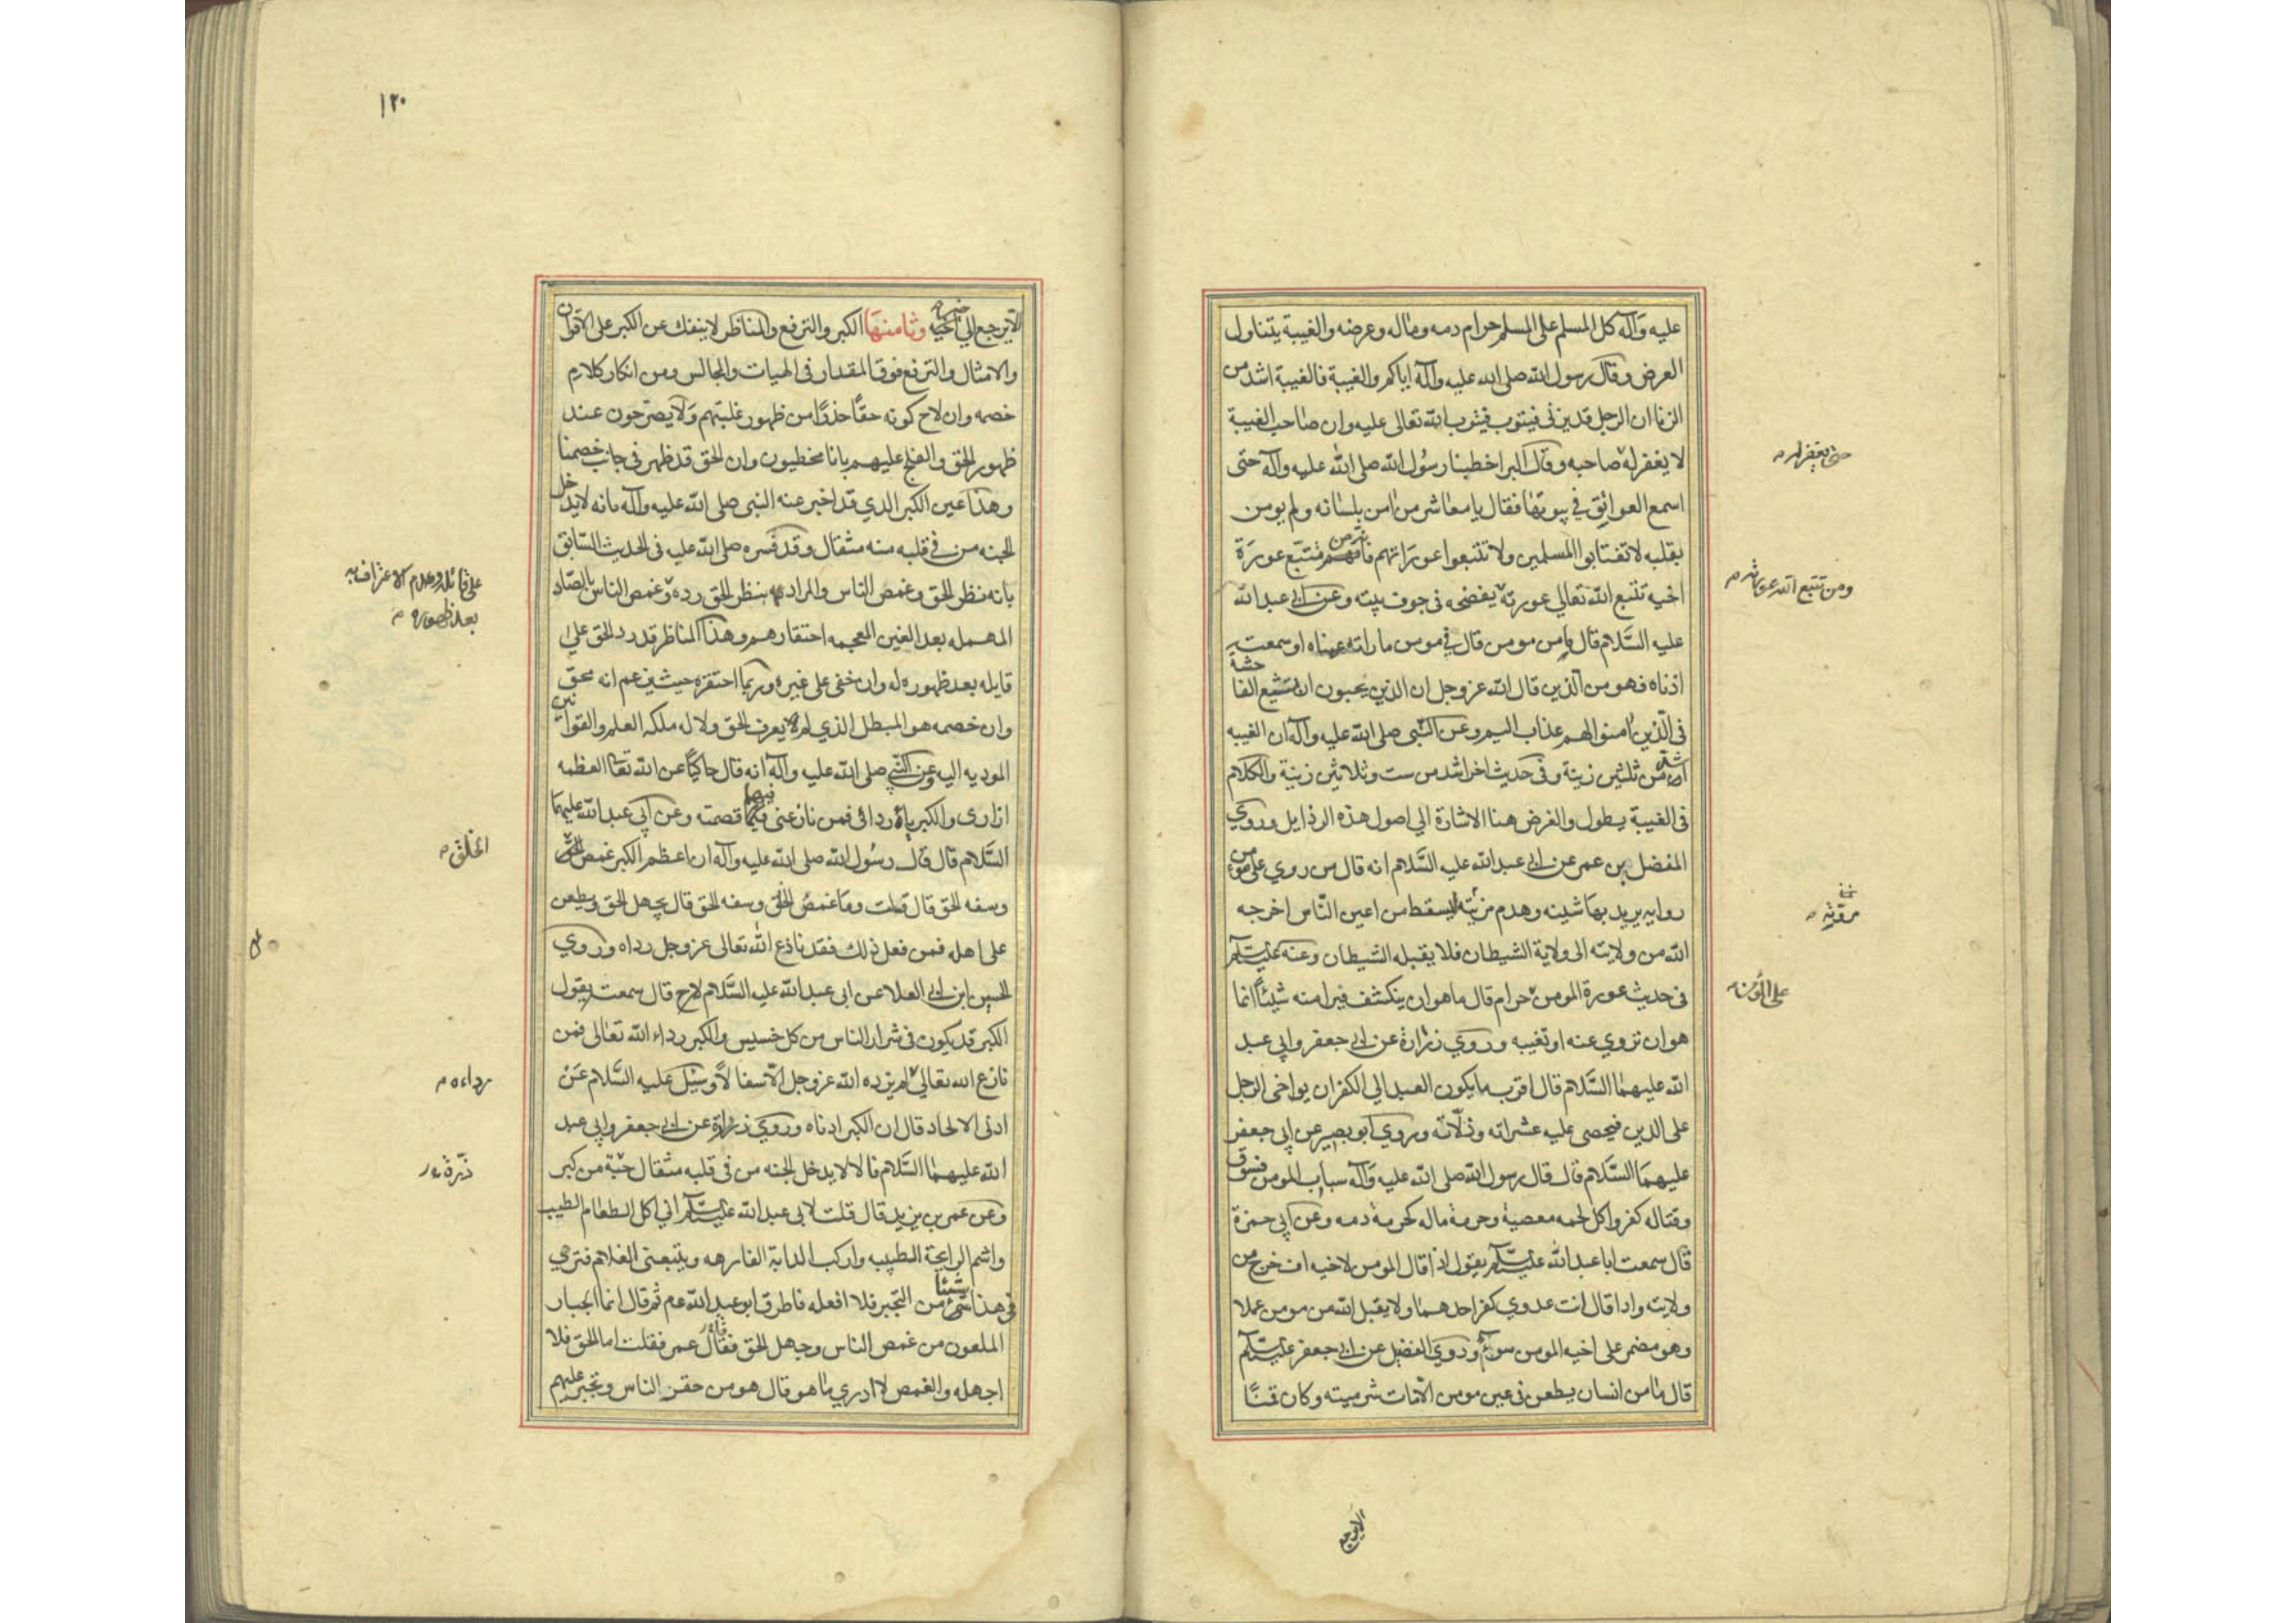 عليه وآله كل المسلم على المسلم حرام دمه وماله وعرضه والغيبة يتناول
العرض وقال رسول الله صلى الله عليه وآله اياكم والغيبة فالغيبة اشد من
الزنا ان الرجل قد يزنى فيتوب فيتوب الله تعالى عليه وان صاحب الغيبة
لا يغفر له صاحبه وقال البرا خطبنا رسول الله صلى الله عليه وآله حتى
حتى يغفر له
اسمع العواتق في بيوتها فقال يا معاشر من امن بلسانه ولم يومن
بقلبه لا تغتابوا المسلمين ولا تتبعوا عوراتهم فانه من تتبع عورة
اخيه تتبع الله تعالى عورته يفضحه فى جوف بيته وعن ابى عبد الله
ومن تتبع الله عورته
عليه السلام قال من مومن قال في مومن ما راته عيناه او سمعت
اذناه فهو من الذين قال الله عز وجل ان الذين يحبون ان تشيع الفاحشة
فى الذين امنوا لهم عذاب اليم وعن النبى صلى الله عليه وآله ان الغيبه
اشد من ثلثين زنية وفى حديث اخر اشد من ست وثلاثين زنية والكلام
فى الغيبة يطول والغرض هنا الاشارة الي اصول هذه الرذايل وروي
المفضل بن عمر عن ابى عبد الله عليه السلام انه قال من روي على مومن
روايه يريد بها شينه وهدم مرته ليسقط من اعين الناس اخرجه
مروته
الله من ولايته الى ولاية الشيطان فلا يقبله الشيطان وعنه عليه السلام
فى حديث عورة المومن حرام قال ما هو ان ينكشف فيرا منه شيئا انما
على المؤمن
هو ان تروي عنه او تغيبه وروي زرارة عن ابى جعفر وابى عبد
الله عليهما السلام قال اقرب ما يكون العبد الي الكفر ان يواخى الرجل
على الدين فيحصى عليه عثراته وزلاته وروي ابو بصير عن ابى جعفر
عليهما السلام قال قال رسول الله صلى الله عليه وآله سباب المومن فسوق
وقتاله كفر واكل لحمه معصية وحرمة ماله كحرمة دمه وعن ابى حمزة
قال سمعت ابا عبد الله عليه السلام يقول اذا قال المومن لاخيه اف خرج من
ولايته واذا قال انت عدوي كفر احدهما ولا يقبل الله من مومن عملا
وهو مضمر على اخيه المومن سوء وروي الفضيل عن ابى جعفر عليه السلام
قال ما من انسان يطعن فى عين مومن الا مات شر ميته وكان قمنا
الا يرجع
١٢٠
الا يرجع الي خير وثامنها الكبر والترفع والمناظر لا ينفك عن الكبر على الاقران
والامثال والترفع فوق المقدار فى الهيات والمجالس ومن انكار كلام
خصمه وان لاح كونه حقا حذرا من ظهور غلبتهم ولا يصرحون عند
ظهور الحق والفلج عليهم بانا مخطيون وان الحق قد ظهر فى جانب خصمنا
وهذا عين الكبر الذي قد اخبر عنه النبى صلى الله عليه وآله بانه لا يدخل
الجنه من فى قلبه منه مثقال وقد فسره صلى الله عليه فى الحديث السابق
بانه بطر الحق وغمص الناس والمراد به بطر الحق رده وغمص الناس بالصاد
على قائله وعدم الاعتراف به
بعد ظهوره
المهمله بعد الغين المعجمه احتقارهم وهذا المناظر قد رد الحق علي
قايله بعد ظهوره له وان خفى على غيره وربما احتقره حيث يزعم انه محق
وان خصمه هو المبطل الذي لم يعرف الحق ولا له ملكة العلم والقوانين
الموديه اليه وعن النبي صلى الله عليه وآله انه قال حاكيا عن الله تعالى العظمه
ازارى والكبرياء ردائى فمن نازعنى فيهما قصمته وعن ابى عبد الله عليهما
السلام قال قال رسول الله صلى الله عليه وآله ان اعظم الكبر غمص
الخلق
وسفه الحق قال قلت وما غمص الخلق وسفه الحق قال يجهل الحق ويطعن
على اهله فمن فعل ذلك فقد نازع الله تعالى عز وجل رداه وروي
الحسين ابن ابى العلا عن ابى عبد الله عليه السلام قال سمعته يقول
الكبر قد يكون فى شرار الناس من كل خسيس والكبر رداء الله تعالى فمن
نازع الله تعالى لم يزده الله عز وجل الا سفالا وسئل عليه السلام عن
رداءه
ادنى الالحاد قال ان الكبر ادناه وروي زرارة عن ابى جعفر وابى عبد
الله عليهما السلام قالا لا يدخل الجنه من فى قلبه مثقال حبة من كبر
ذرة
وعن عمر بن يزيد قال قلت لابى عبد الله عليه السلام انى اكل الطعام الطيب
واشم الرايحة الطيبه واركب الدابة الفارهه ويتبعنى الغلام فترى
فى هذا شيئا من التجبر فلا افعله فاطرق ابو عبد الله عم ثم قال انما الجبار
الملعون من غمص الناس وجهل الحق فقال عمر فقلت اما الحق فلا
اجهله والغمص لا ادري ما هو قال هو من حقر الناس وتجبر عليهم